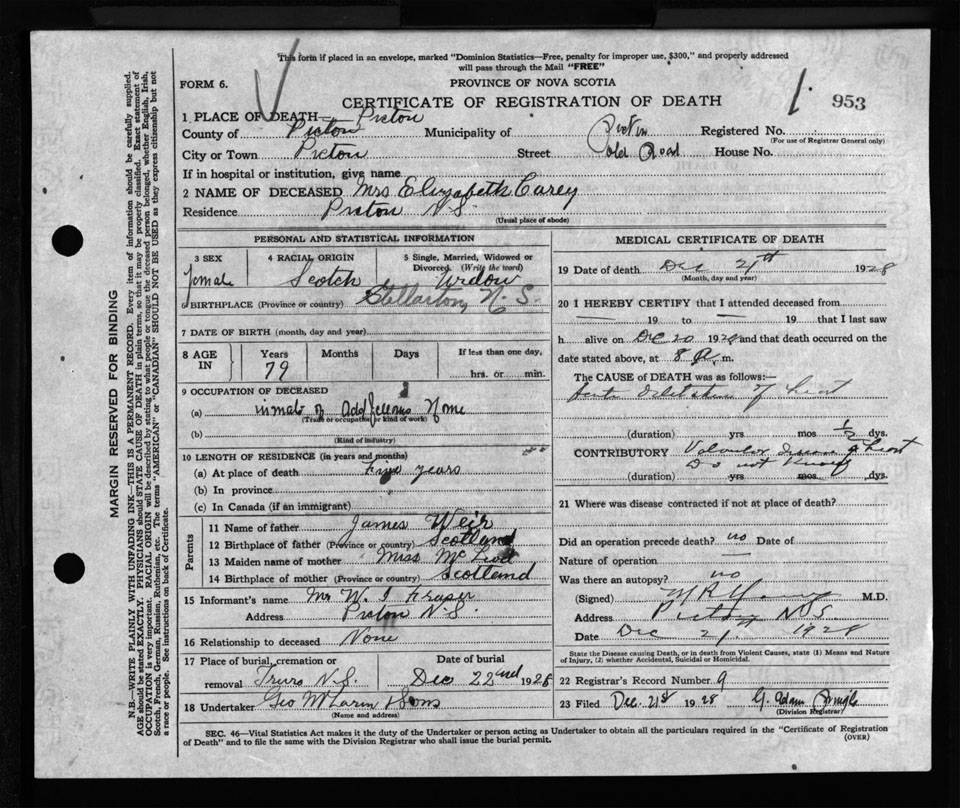 This form if placed in an envelope, marked "Dominion Statistics—Free, penalty for improper use, $300," and properly addressed
will pass through the Mail "FREE"
FORM 6.
PROVINCE OF NOVA SCOTIA
CERTIFICATE OF REGISTRATION OF DEATH
953
1 PLACE OF DEATH— Pictou
County of Pictou Municipality of Pictou Registered No.
(For use of Registrar General only)
City or Town Pictou Street Old Road House No.
If in hospital or institution, give name
2 NAME OF DECEASED Mrs Elizabeth Carey
Residence Pictou N.S.
(Usual place of abode)
PERSONAL AND STATISTICAL INFORMATION
3 SEX Female
4 RACIAL ORIGIN Scotch
5 Single, Married, Widowed or
Divorced. (Write the word)
Widow
6 BIRTHPLACE (Province or country) Stellarton, N.S.
7 DATE OF BIRTH (month, day and year)
8 AGE IN Years 79 Months Days If less than one day,
hrs. or min.
9 OCCUPATION OF DECEASED
(a) inmate of Oddfellows Home
(Trade or occupation or kind of work)
(b)
(Kind of industry)
10 LENGTH OF RESIDENCE (in years and months)
(a) At place of death years
(b) In province
(c) In Canada (if an immigrant)
Parents
11 Name of father James Weir
12 Birthplace of father (Province or country) Scotland
13 Maiden name of mother Miss McLeod
14 Birthplace of mother (Province or country) Scotland
15 Informant's name Mr W. I Fraser
Address Pictou N.S.
16 Relationship to deceased None
17 Place of burial, cremation or
removal Truro N.S.
Date of burial
Dec 22nd 1928
18 Undertaker Geo McLaren & Sons
(Name and address)
MEDICAL CERTIFICATE OF DEATH
19 Date of death Dec 1928
(Month, day and year)
20 I HEREBY CERTIFY that I attended deceased from
— 19 to — 19 that I last saw
h alive on Dec 20 1928 and that death occurred on the
date stated above, at 8 P. m.
The CAUSE OF DEATH was as follows:—
of heart
(duration) yrs mos ½ dys.
CONTRIBUTORY Valvular disease of heart
Do not know
(duration) yrs mos dys.
21 Where was disease contracted if not at place of death?
Did an operation precede death? no Date of
Nature of operation —
Was there an autopsy? no
(Signed) M R Young M.D.
Address Pictou N.S.
Date Dec 21st 1928
State the Disease causing Death, or in death from Violent Causes, state (1) Means and Nature
of Injury, (2) whether Accidental, Suicidal or Homicidal.
22 Registrar's Record Number 9
23 Filed Dec. 21st 1928 G.
(Division Registrar)
SEC. 46—Vital Statistics Act makes it the duty of the Undertaker or person acting as Undertaker to obtain all the particulars required in the "Certificate of Registration
of Death" and to file the same with the Division Registrar who shall issue the burial permit.
(OVER)
MARGIN RESERVED FOR BINDING
N.B.—WRITE PLAINLY WITH UNFADING INK—THIS IS A PERMANENT RECORD. Every item of information should be carefully supplied.
AGE should be stated EXACTLY. PHYSICIANS should STATE CAUSE OF DEATH in plain terms, so that it may be properly classified. Exact statement of
OCCUPATION is very important. RACIAL ORIGIN will be described by stating to what people or tongue the deceased person belonged, whether English, Irish,
Scotch, French, German, Russian, Ruthenian, etc. The terms "AMERICAN" or "CANADIAN" SHOULD NOT BE USED as they express citizenship but not
a race or people. See instructions on back of Certificate.